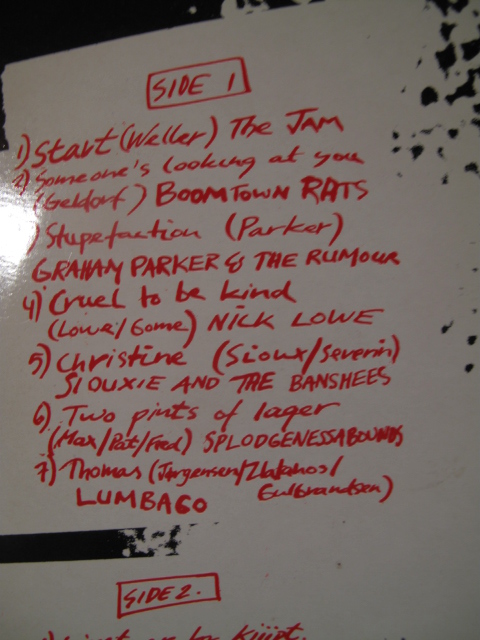 SIDE 1
1) Start (Weller) THE JAM
2) Someone's looking at you
(Geldorf) BOOMTOWN RATS
) Stupefaction (Parker)
GRAHAM PARKER & THE RUMOUR
4) Cruel to be kind
(Lowe/Gome) NICK LOWE
5) Christine (Sioux/Severin)
SIOUXIE AND THE BANSHEES
6) Two pints of lager
(Max/Pat/Fred) SPLODGENESSABOUNDS
7) Thomas (Jørgensen/Zlatanos/
Gulbrandsen)
LUMBAGO
SIDE 2.